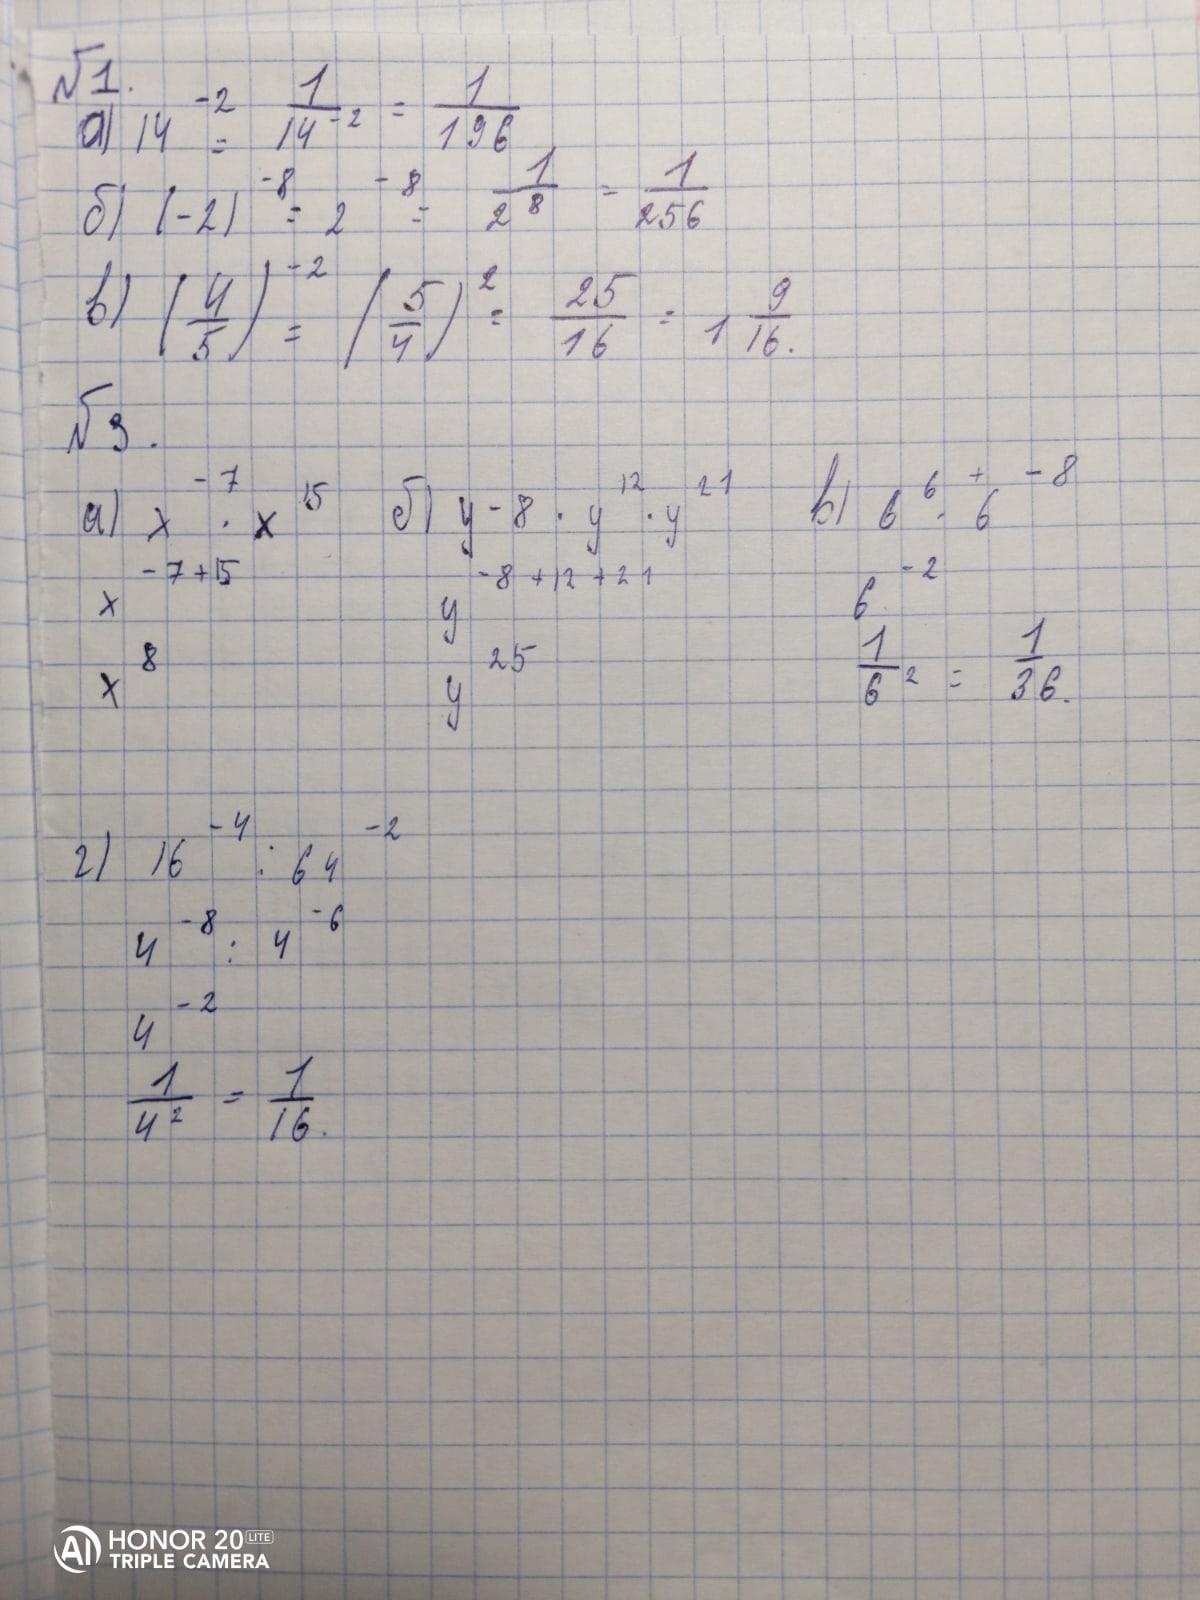 №1.
а) 14^{-2} = \frac{1}{14^{-2}} = \frac{1}{196}
б) (-2)^{-8} = 2^{-8} = \frac{1}{2^8} = \frac{1}{256}
в) (\frac{4}{5})^{-2} = (\frac{5}{4})^2 = \frac{25}{16} = 1\frac{9}{16}.
№3.
а) x^{-7} · x^{15} б) y-8 · y^{12} · y^{21} в) 6^6 · 6^{+ -8}
x^{-7+15} y^{-8+12+21} 6^{-2}
x^8 y^{25} \frac{1}{6^2} = \frac{1}{36}.
г) 16^{-4} : 64^{-2}
4^{-8} : 4^{-6}
4^{-2}
\frac{1}{4^2} = \frac{1}{16}.
HONOR 20 LITE
AI TRIPLE CAMERA